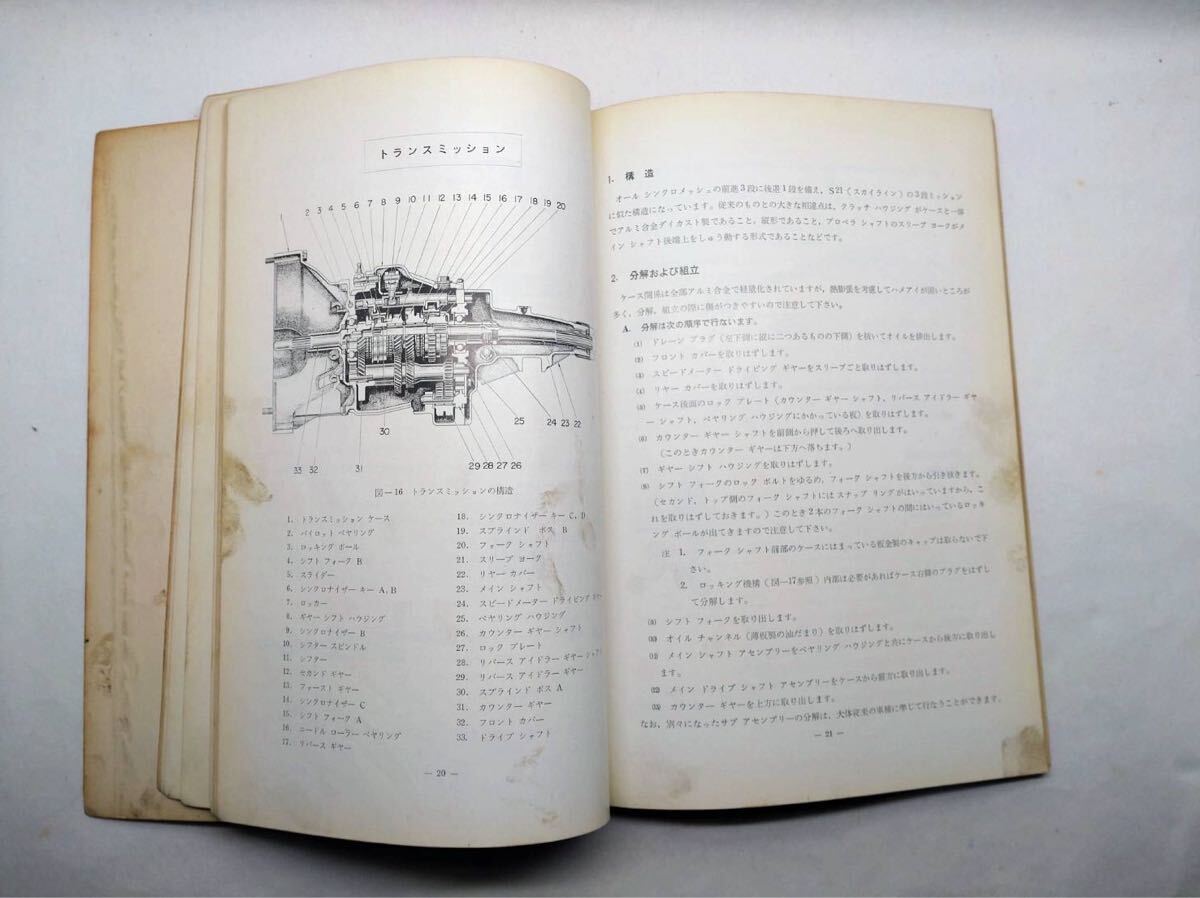 トランスミッション
1 2 3 4 5 6 7 8 9 10 11 12 13 14 15 16 17 18 19 20
33 32 31 30 29 28 27 26 25 24 23 22 21
図—16 トランスミッションの構造
1. トランスミッション ケース
2. パイロット ベヤリング
3. ロッキング ボール
4. シフト フォーク B
5. スライダー
6. シンクロナイザー キー A, B
7. ロッカー
8. ギヤー シフト ハウジング
9. シンクロナイザー B
10. シフター スピンドル
11. シフター
12. セカンド ギヤー
13. ファースト ギヤー
14. シンクロナイザー C
15. シフト フォーク A
16. ニードル ローラー ベヤリング
17. リバース ギヤー
18. シンクロナイザー キー C, D
19. スプラインド ボス B
20. フォーク シャフト
21. スリーブ ヨーク
22. リヤー カバー
23. メイン シャフト
24. スピードメーター ドライビング ギヤー
25. ベヤリング ハウジング
26. カウンター ギヤー シャフト
27. ロック プレート
28. リバース アイドラー ギヤー シャフト
29. リバース アイドラー ギヤー
30. スプラインド ボス A
31. カウンター ギヤー
32. フロント カバー
33. ドライブ シャフト
— 20 —
1. 構 造
オール シンクロメッシュの前進3段に後退1段を備え，S21（スカイライン）の3段ミッション
に似た構造になっています。従来のものとの大きな相違点は，クラッチ ハウジング がケースと一体
でアルミ合金ダイカスト製であること，縦形であること，プロペラ シャフトのスリーブ ヨークがメ
イン シャフト後端上をしゅう動する形式であることなどです。
2. 分解および組立
ケース関係は全部アルミ合金で軽量化されていますが，熱膨張を考慮してハメアイが固いところが
多く，分解，組立の際に傷がつきやすいので注意して下さい。
A. 分解は次の順序で行ないます。
(1) ドレーン プラグ（左下側に縦に二つあるものの下側）を抜いてオイルを排出します。
(2) フロント カバーを取りはずします。
(3) スピードメーター ドライビング ギヤーをスリーブごと取りはずします。
(4) リヤー カバーを取りはずします。
(5) ケース後面のロック プレート（カウンター ギヤー シャフト，リバース アイドラー ギヤ
ー シャフト，ベヤリング ハウジングにかかっている板）を取りはずします。
(6) カウンター ギヤー シャフトを前側から押して後ろへ取り出します。
（このときカウンター ギヤーは下方へ落ちます。）
(7) ギヤー シフト ハウジングを取りはずします。
(8) シフト フォークのロック ボルトをゆるめ，フォーク シャフトを後方から引き抜きます。
（セカンド，トップ側のフォーク シャフトには スナップ リングがはいっていますから，こ
れを取りはずしておきます。）このとき2本のフォーク シャフトの間にはいっているロッキ
ング ボールが出てきますので注意して下さい。
注 1. フォーク シャフト前部のケースにはまっている板金製のキャップは取らないで下
さい。
2. ロッキング機構（図—17参照）内部は必要があればケース右側のプラグをはずし
て分解します。
(9) シフト フォークを取り出します。
(10) オイル チャンネル（薄板製の油だまり）を取りはずします。
(11) メイン シャフト アセンブリーをベヤリング ハウジングと共にケースから後方に取り出し
ます。
(12) メイン ドライブ シャフト アセンブリーをケースから前方に取り出します。
(13) カウンター ギヤーを上方に取り出します。
なお，別々になったサブ アセンブリーの分解は，大体従来の車種に準じて行なうことができます。
— 21 —